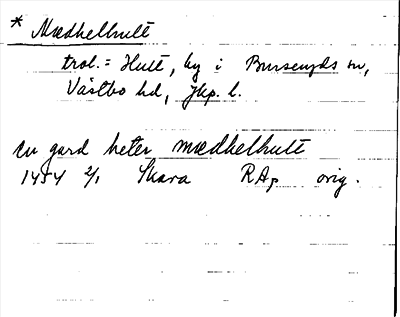 * Mædhelhult
trol. = Hult, by i Burseryds sn,
Västbo hd, Jkp. l.
en gard heter mædhelhult
1454 2/1 Skara RAp orig.